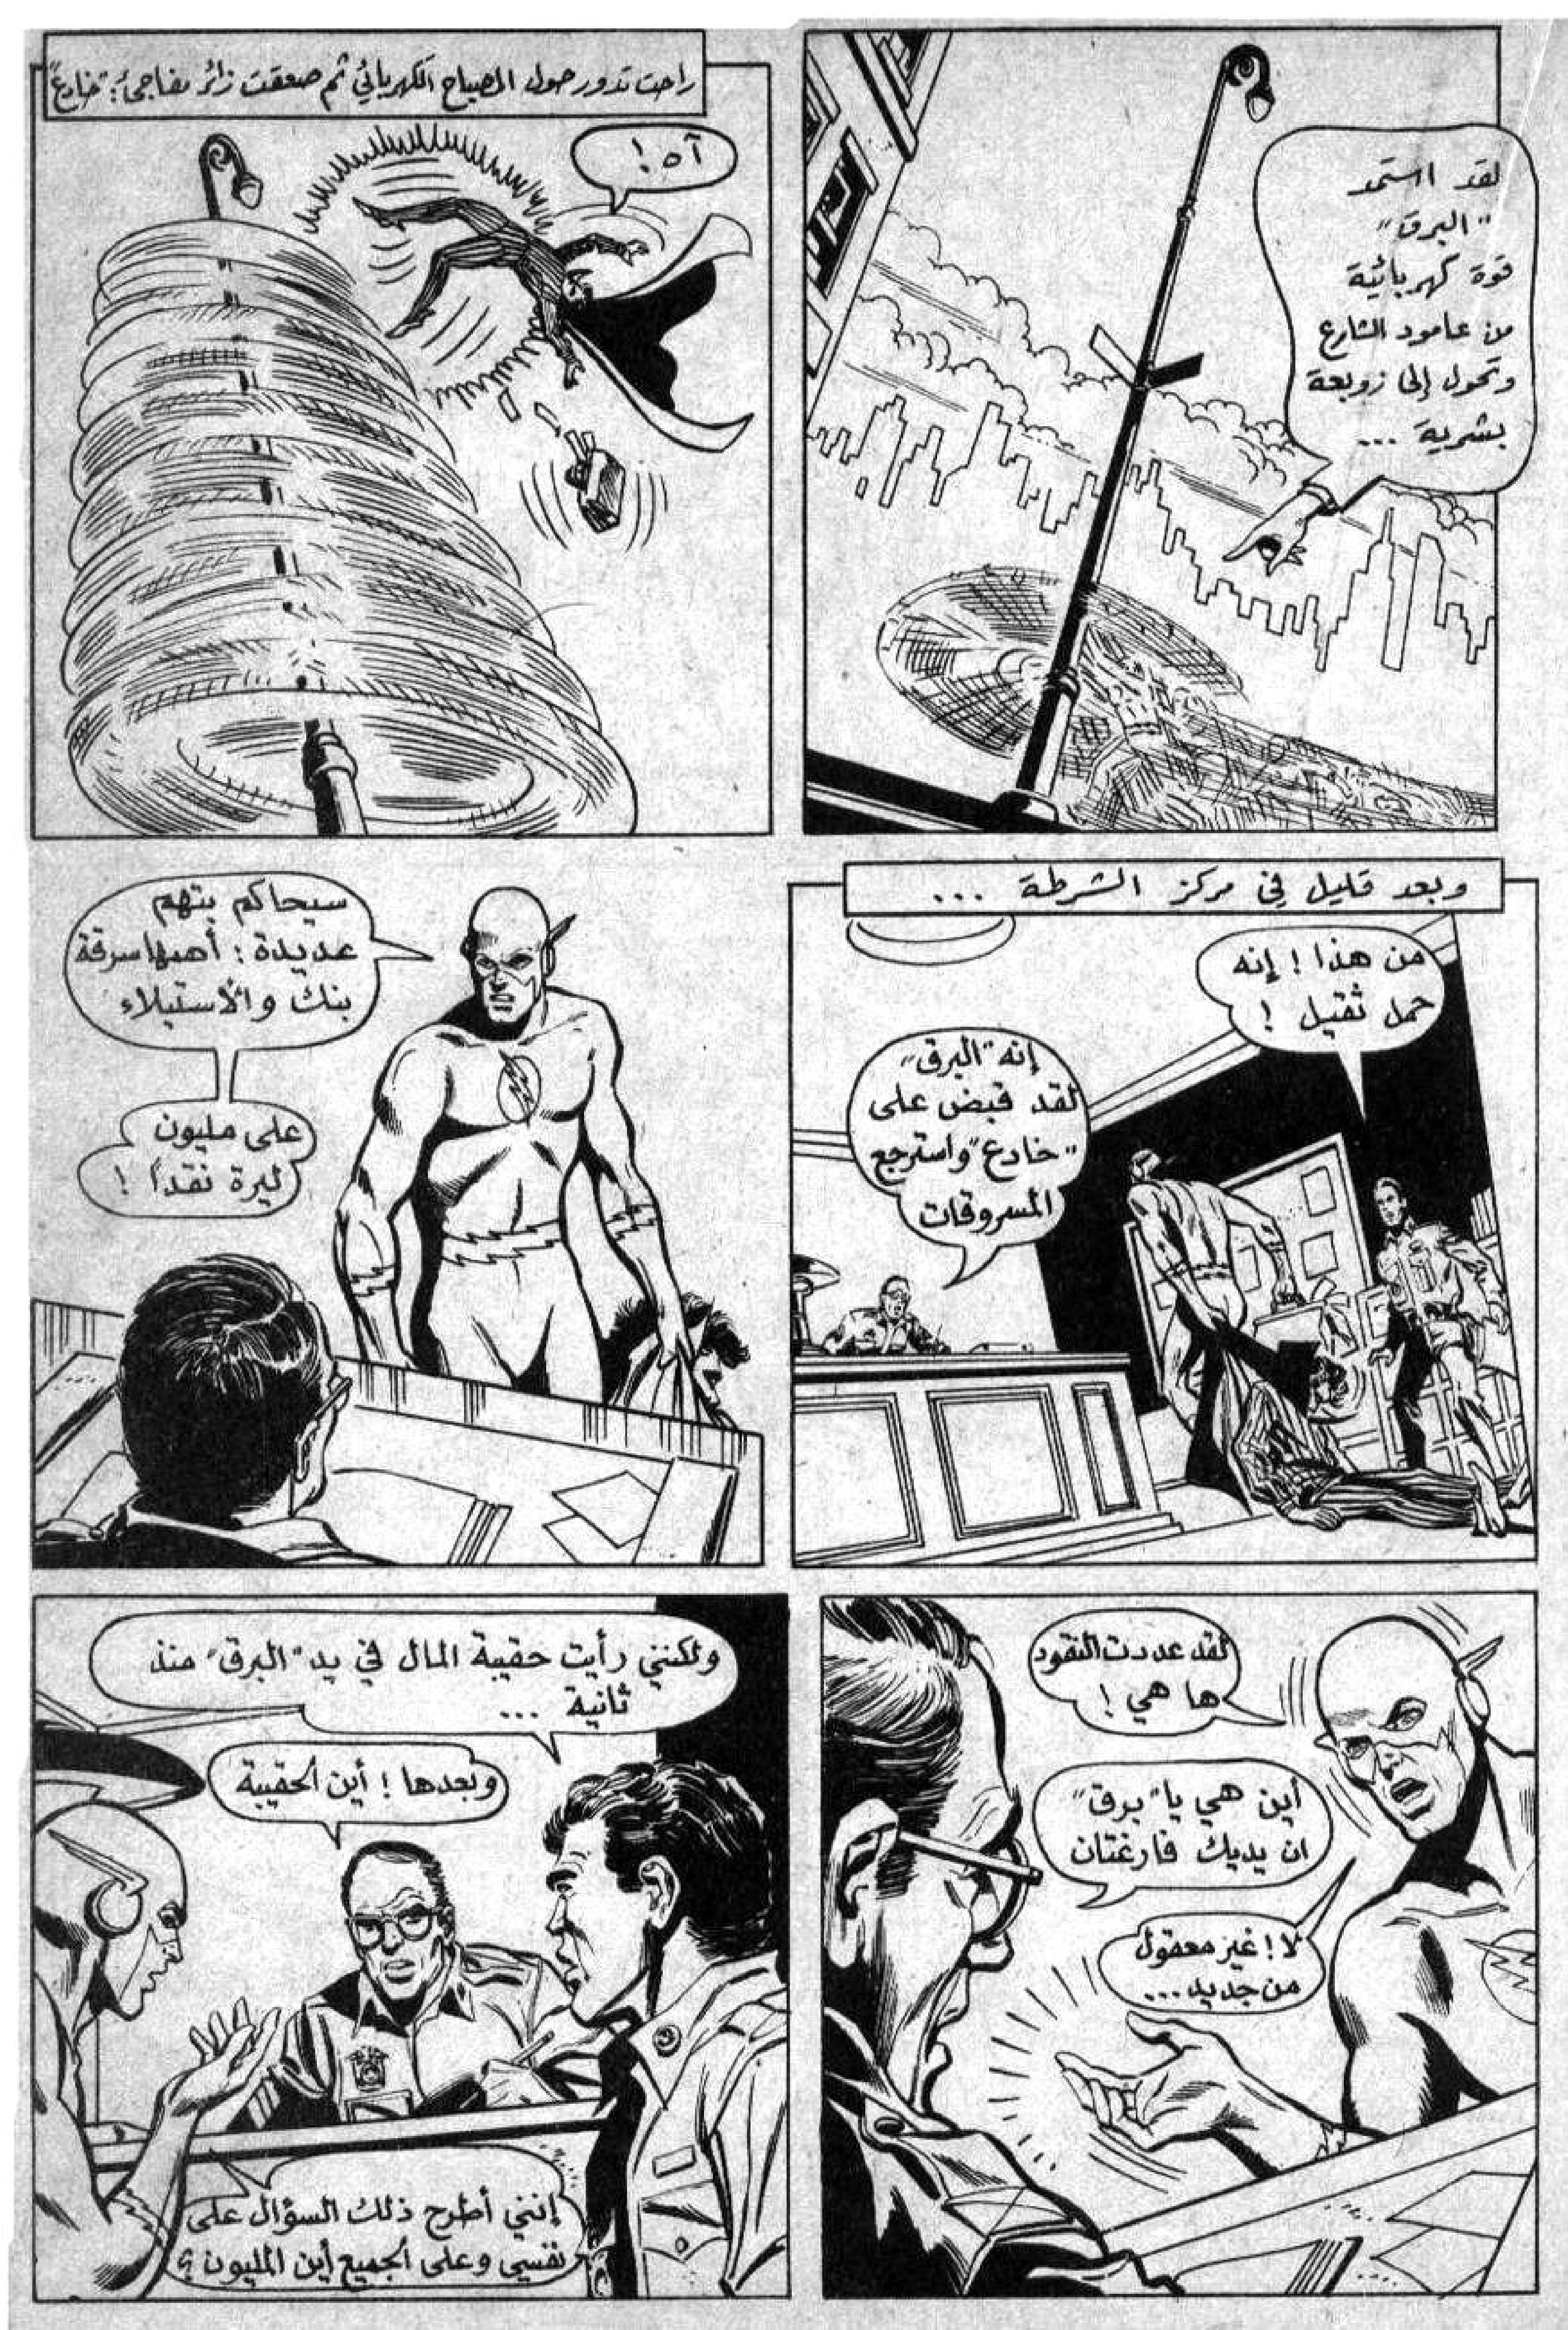 لقد استمد
"البرق"
قوة كهربائية
من عامود الشارع
وتحول إلى زوبعة
بشرية ...
راحت تدور حول المصباح الكهربائي ثم صعقت زائر مفاجئ: "خادع"
آه !
وبعد قليل في مركز الشرطة ...
من هذا ! إنه
حمل ثقيل !
إنه "البرق"
لقد قبض على
"خادع" واسترجع
المسروقات
سيحاكم بتهم
عديدة : أهمها سرقة
بنك والاستيلاء
على مليون
ليرة نقداً !
لقد عددت النقود
ها هي !
أين هي يا "برق"
ان يديك فارغتان
لا ! غير معقول
من جديد ...
ولكنني رأيت حقيبة المال في يد "البرق" منذ
ثانية ...
وبعدها ! أين الحقيبة
إنني أطرح ذلك السؤال على
نفسي وعلى الجميع أين المليون ؟